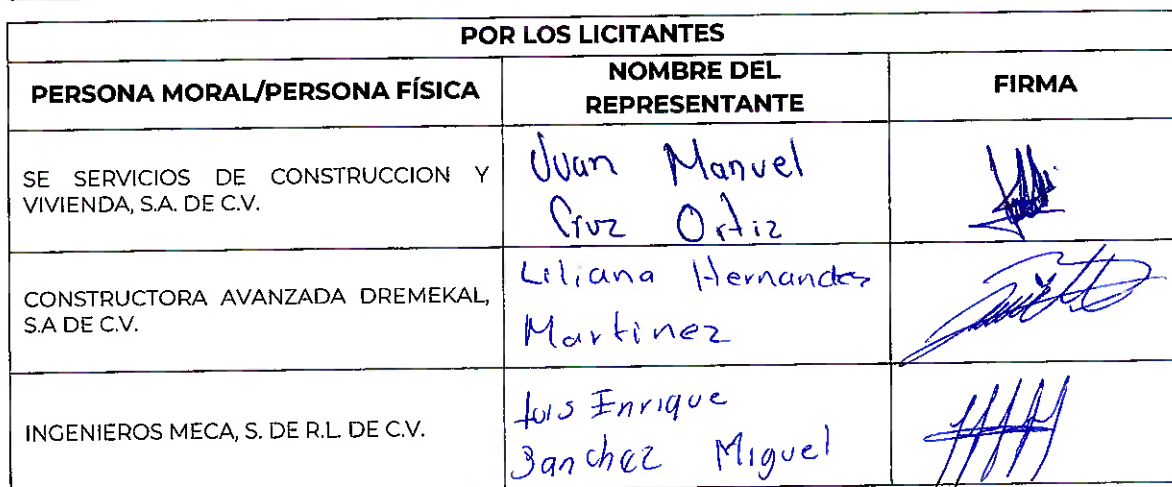 POR LOS LICITANTES
PERSONA MORAL/PERSONA FÍSICA
NOMBRE DEL
REPRESENTANTE
FIRMA
SE SERVICIOS DE CONSTRUCCION Y
VIVIENDA, S.A. DE C.V.
Juan Manuel
Cruz Ortiz
CONSTRUCTORA AVANZADA DREMEKAL,
S.A DE C.V.
Liliana Hernandez
Martinez
INGENIEROS MECA, S. DE R.L. DE C.V.
Luis Enrique
Sanchez Miguel